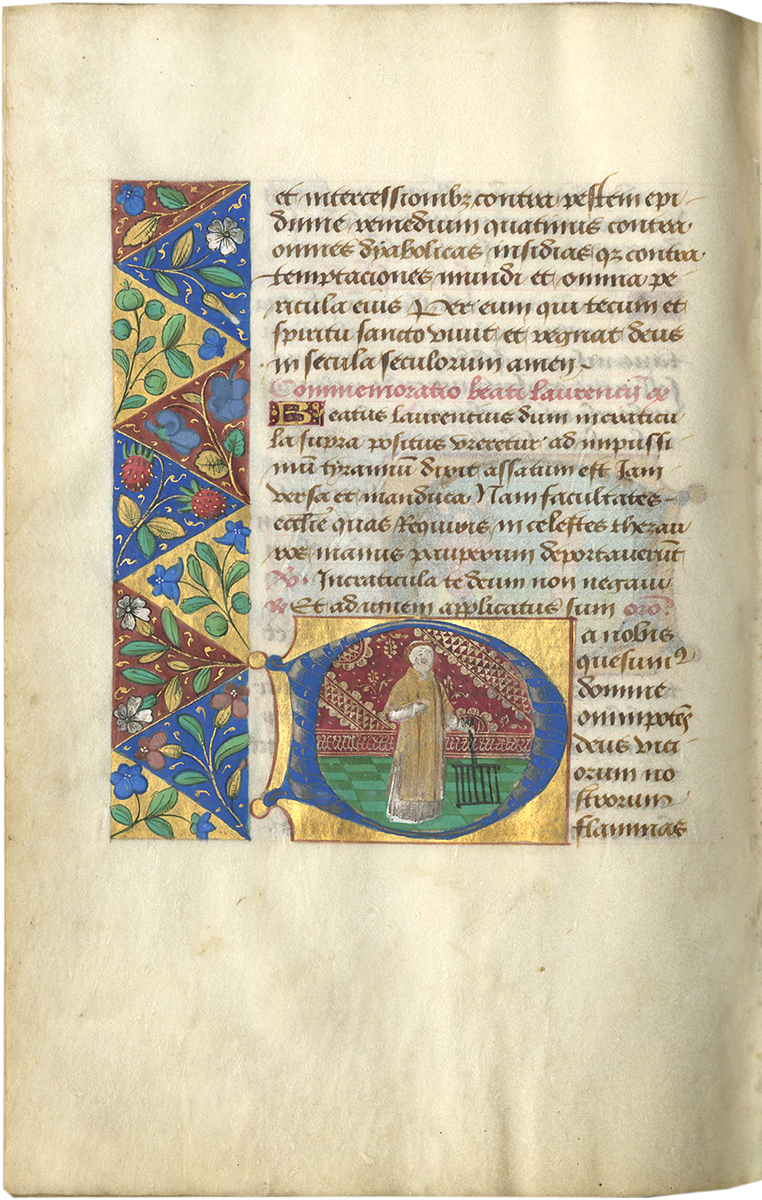 et intercessionibȝ contra pestem epi
dimie remedium quatinus contra
omnes dyabolicas insidias qȝ contra
temptaciones mundi et omnia pe
ricula eius Per eum qui tecum et
spiritu sancto vivit et regnat deus
in secula seculorum amen
Commemoratio beati laurencij
Beatus laurentius dum in craticu
la supra positus vreretur ad impiissi
mū tyrannū dixit assatum est Iam
versa et manduca Nam facultates
eccl̄ie quas Requiris in celestes thezau
ros manus pauperum deportaverūt
In craticula te deum non negavi
Et ad ignem applicatus sum oro
Da nobis
quesumꝰ
domine
omnipotēs
deus vici
orum no
strorum
flammas